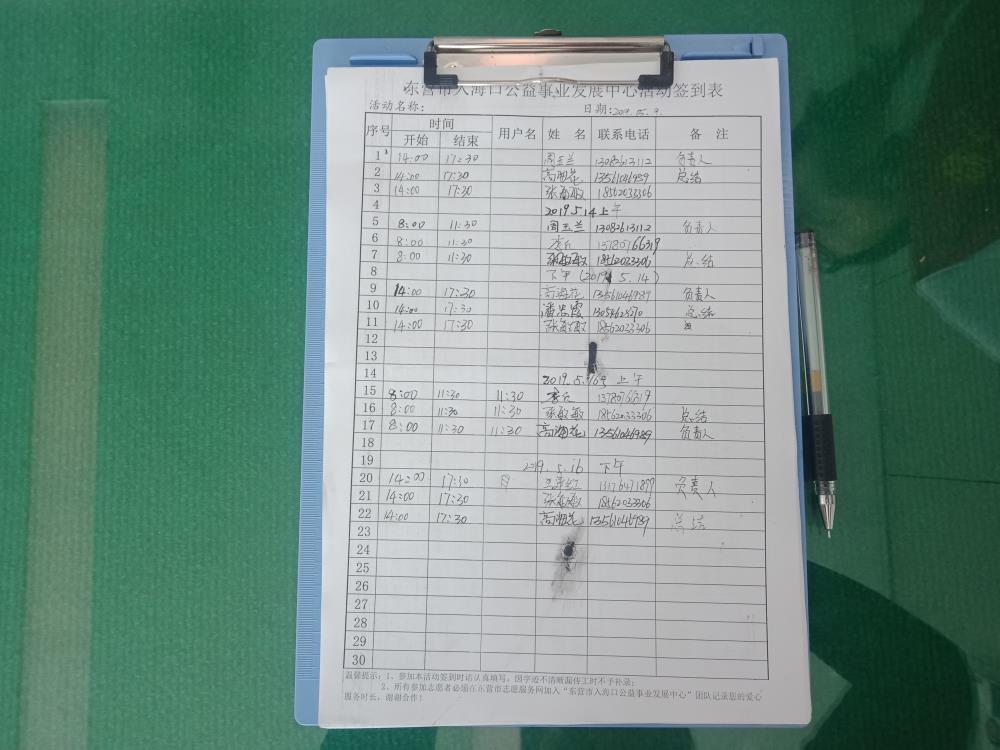 东营市入海口公益事业发展中心活动签到表
活动名称： 日期：2019.05.9.
序号 时间 用户名 姓 名 联系电话 备 注
开始 结束
1 14:00 17:30 周玉兰 13082613112 负责人
2 14:00 17:30 高海花 13561046989 总结
3 14:00 17:30 张敏敏 18562033306
4 2019.5.14上午
5 8:00 11:30 周玉兰 13082613112 负责人
6 8:00 11:30 13780766319
7 8:00 11:30 张敏敏 18562033306 总结
8 下午（2019 5.14）
9 14:00 17:30 高海花 13561046989 负责人
10 14:00 17:30 总结
11 14:00 17:30 张敏敏 18562033306
12
13
14 2019.5.16 上午
15 8:00 11:30 11:30 13780766319
16 8:00 11:30 11:30 张敏敏 18562033306 总结
17 8:00 11:30 11:30 高海花 13561046989 负责人
18
19 2019.5.16 下午
20 14:00 17:30 负责人
21 14:00 17:30 张敏敏 18562033306
22 14:00 17:30 高海花 13561046989 总结
23
24
25
26
27
28
29
30
温馨提示：1、参加本活动签到时请认真填写，因字迹不清晰漏传工时不予补录；
2、所有参加志愿者必须在东营市志愿服务网加入“东营市入海口公益事业发展中心”团队记录您的爱心
服务时长，谢谢合作！